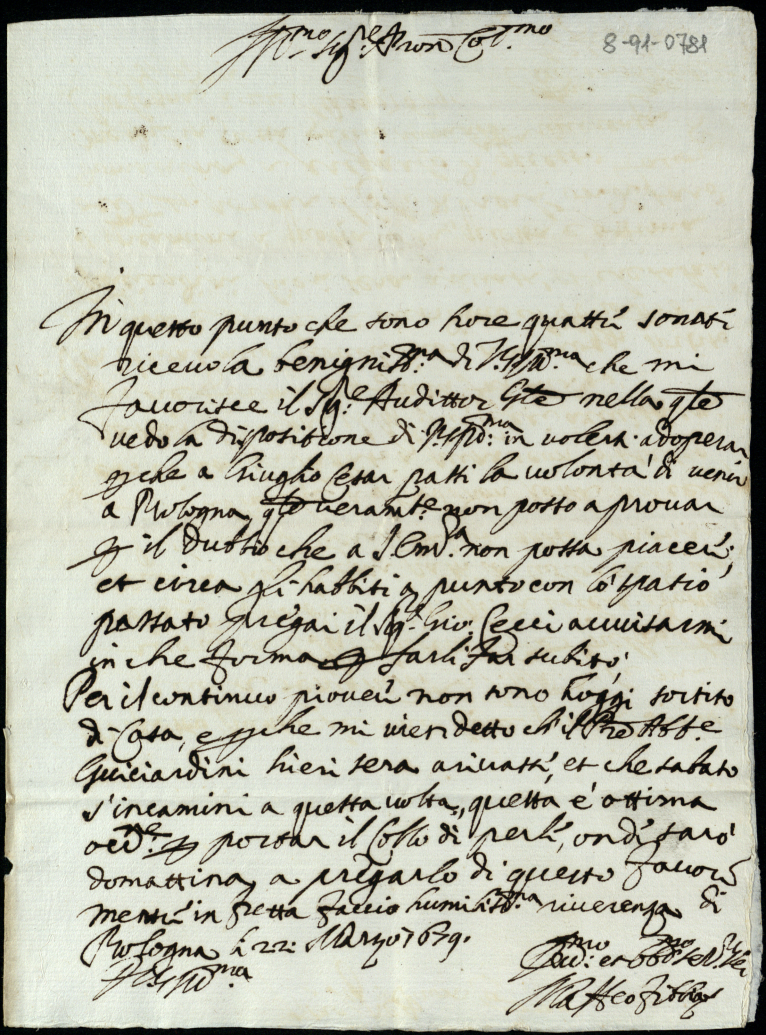 Ill.mo Sig.re e Pron Col.mo
8-91-0781
In questo punto che sono hore quattro sonati
ricevo la benigniss.ma di V.S. Ill.ma che mi
favorisce il Sig.re Audittor Gte nella qle
vedo la dispositione di V.S. Ill.ma in volersi adoperar
perche a Giuglio Cesar passi la volontà di venir
a Bologna, qto veramte non posso aprovar
per il dubio che a S. Em.za non possa piacere,
et circa gli habbiti a punto con lo spatio
passato pregai il Sig.r Gio: Cecci avvisarmi
in che forma per farli far subito
Per il continuo piovere non sono hoggi sortito
di Casa, e perche mi vien detto ch'il Pre Abb.e
Guiciardini hieri sera arivassi, et che sabato
s'incamini a questa volta, questa è ottima
occ.ne per portar il Collo di perle, onde sarò
domattina, a pregarlo di questo favore
mentre in fretta faccio humiliss.ma riverenza di
Bologna li 22: Marzo 1679.
D.V.S. Ill.ma
Dev.mo et obb.mo Ser.re
Matteo